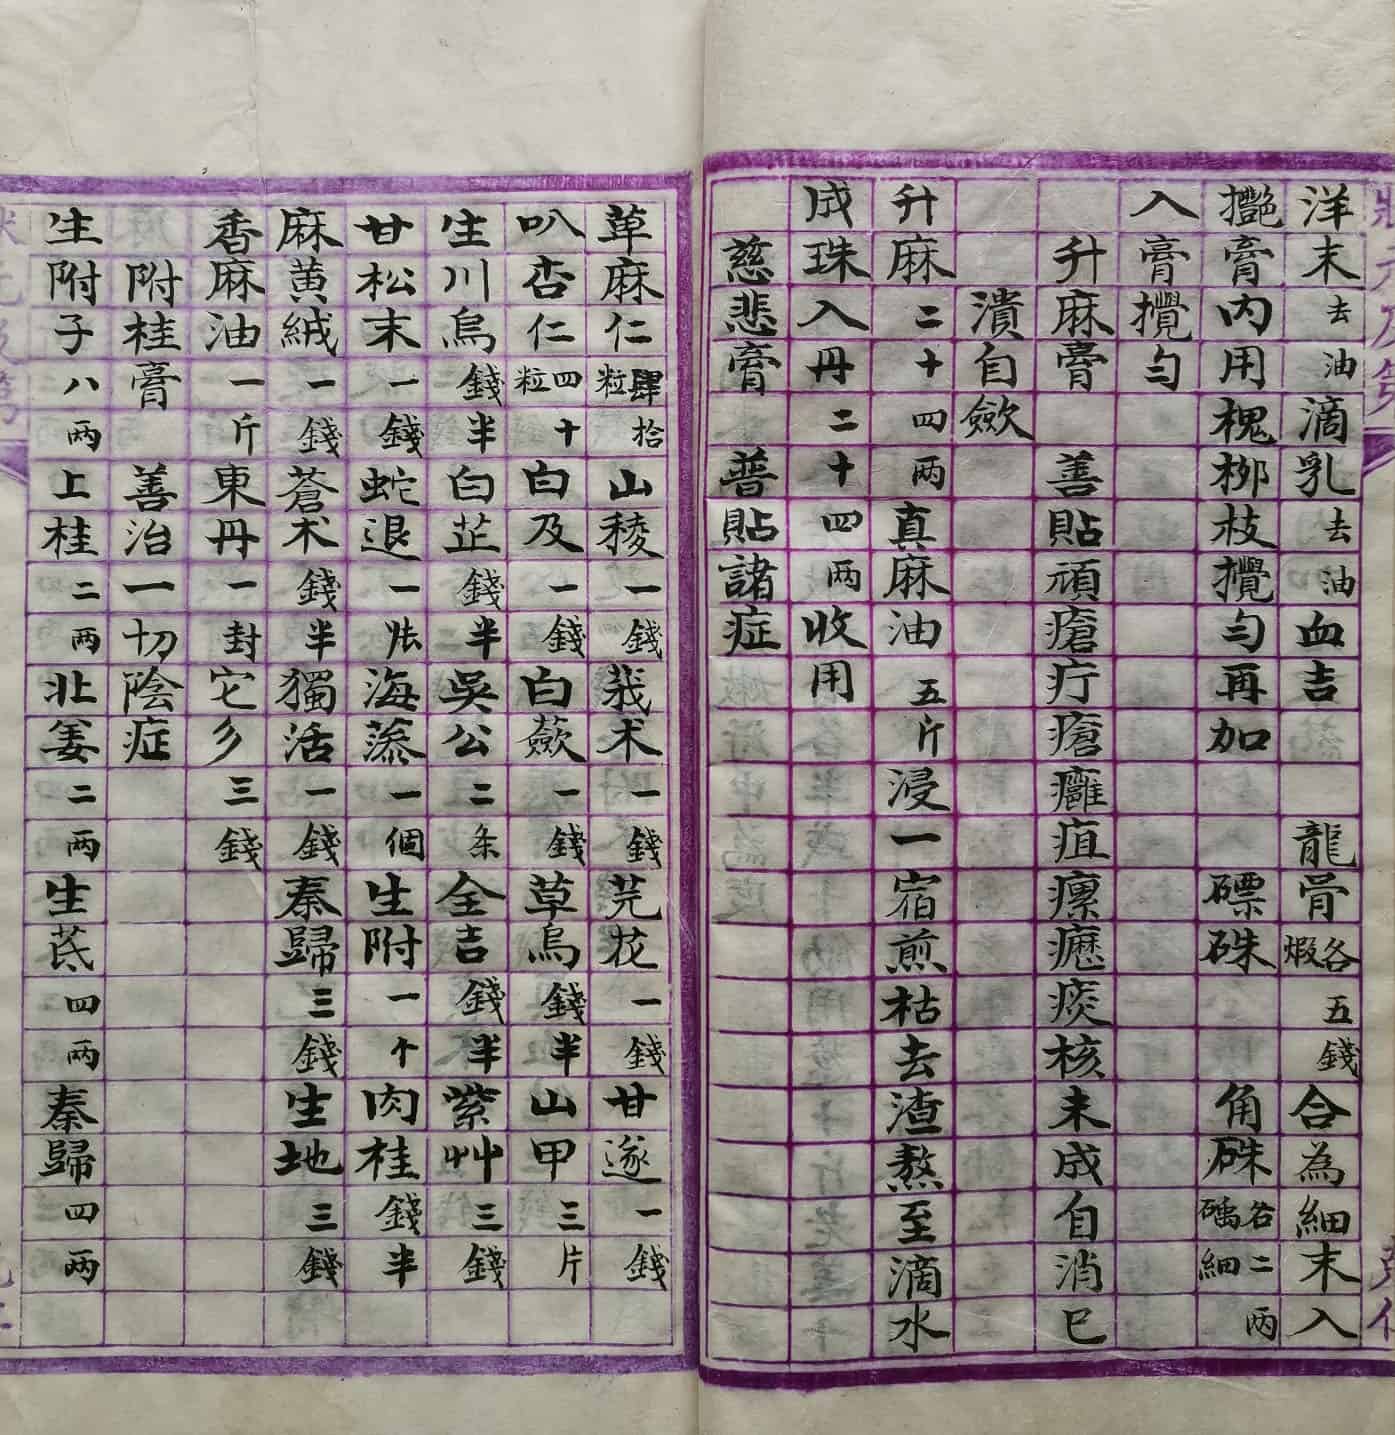 洋末去油滴乳去油血吉龍骨煆各五錢合為細末入
攪膏內用槐柳枝攪勻再加硃角硃細各二兩
入膏攪勻
升麻膏善貼頑瘡疔瘡癰疽瘰癧痰核未成自消已
潰自歛
升麻二十四兩真麻油五斤浸一宿煎枯去渣熬至滴水
成珠入丹二十四兩收用
慈悲膏普貼諸症
草麻仁肆拾粒山稜一錢莪朮一錢芫花一錢甘遂一錢
叭杏仁四十粒白及一錢白蘞一錢草烏錢半山甲三片
生川烏錢半白芷錢半吳公二条全吉錢半紫艸三錢
甘松末一錢蛇退一個海蔘一個生附一个肉桂錢半
麻黃絨一錢蒼术錢半獨活一錢秦歸三錢生地三錢
香麻油一斤東丹一封乳乡三錢
附桂膏善治一切陰症
生附子八兩上桂二兩北姜二兩生茋四兩秦歸四兩